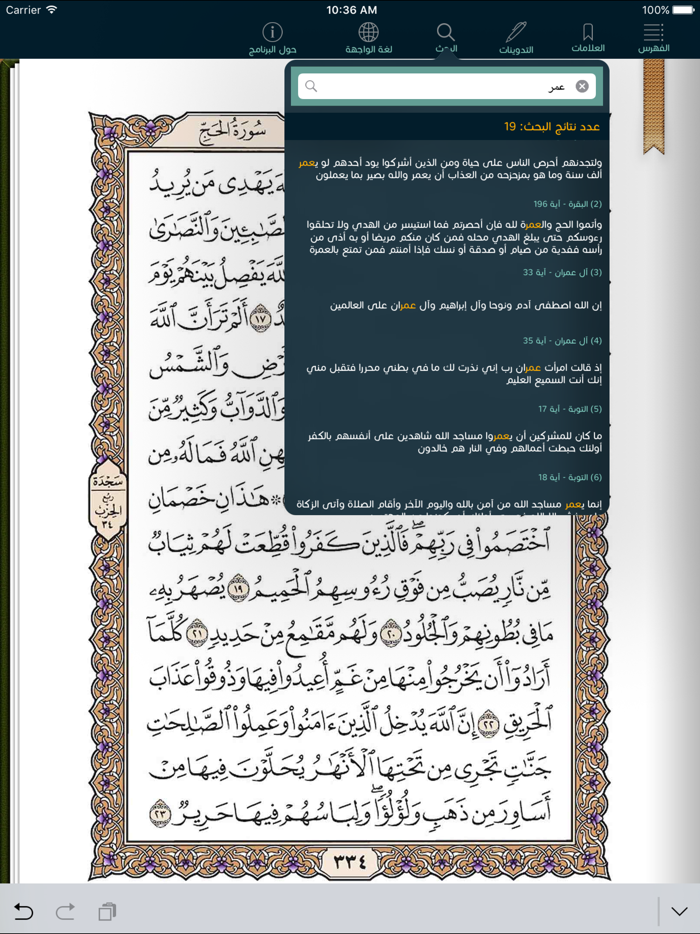 Carrier
10:36 AM
100%
الفهرس
العلامات
التدوينات
البحث
لغة الواجهة
حول البرنامج
عمر
عدد نتائج البحث: 19
ولتجدنهم أحرص الناس على حياة ومن الذين أشركوا يود أحدهم لو يعمر
ألف سنة وما هو بمزحزحه من العذاب أن يعمر والله بصير بما يعملون
(2) البقرة - آية 196
وأتموا الحج والعمرة لله فإن أحصرتم فما استيسر من الهدي ولا تحلقوا
رءوسكم حتى يبلغ الهدي محله فمن كان منكم مريضا أو به أذى من
رأسه ففدية من صيام أو صدقة أو نسك فإذا أمنتم فمن تمتع بالعمرة
(3) آل عمران - آية 33
إن الله اصطفى آدم ونوحا وآل إبراهيم وآل عمران على العالمين
(4) آل عمران - آية 35
إذ قالت امرأت عمران رب إني نذرت لك ما في بطني محررا فتقبل مني
إنك أنت السميع العليم
(5) التوبة - آية 17
ما كان للمشركين أن يعمروا مساجد الله شاهدين على أنفسهم بالكفر
أولئك حبطت أعمالهم وفي النار هم خالدون
(6) التوبة - آية 18
إنما يعمر مساجد الله من آمن بالله واليوم الآخر وأقام الصلاة وآتى الزكاة
سُورَةُ الحَجّ
يَهْدِى مَن يُرِيدُ
وَٱلصَّٰبِـِٔينَ وَٱلنَّصَٰرَىٰ
ٱللَّهَ يَفْصِلُ بَيْنَهُمْ يَوْمَ
١٧ أَلَمْ تَرَ أَنَّ ٱللَّهَ
وَٱلشَّمْسُ
وَٱلدَّوَآبُّ وَكَثِيرٌ مِّنَ
يُهِنِ ٱللَّهُ فَمَا لَهُۥ مِن
۞ هَٰذَانِ خَصْمَانِ
ٱخْتَصَمُوا۟ فِى رَبِّهِمْ ۖ فَٱلَّذِينَ كَفَرُوا۟ قُطِّعَتْ لَهُمْ ثِيَابٌ
مِّن نَّارٍ يُصَبُّ مِن فَوْقِ رُءُوسِهِمُ ٱلْحَمِيمُ ١٩ يُصْهَرُ بِهِۦ
مَا فِى بُطُونِهِمْ وَٱلْجُلُودُ ٢٠ وَلَهُم مَّقَٰمِعُ مِنْ حَدِيدٍ ٢١ كُلَّمَآ
أَرَادُوٓا۟ أَن يَخْرُجُوا۟ مِنْهَا مِنْ غَمٍّ أُعِيدُوا۟ فِيهَا وَذُوقُوا۟ عَذَابَ
ٱلْحَرِيقِ ٢٢ إِنَّ ٱللَّهَ يُدْخِلُ ٱلَّذِينَ ءَامَنُوا۟ وَعَمِلُوا۟ ٱلصَّٰلِحَٰتِ
جَنَّٰتٍ تَجْرِى مِن تَحْتِهَا ٱلْأَنْهَٰرُ يُحَلَّوْنَ فِيهَا مِنْ
أَسَاوِرَ مِن ذَهَبٍ وَلُؤْلُؤًا ۖ وَلِبَاسُهُمْ فِيهَا حَرِيرٌ ٢٣
سَجْدَة
رُبْع
الحِزْب
٣٤
٣٣٤